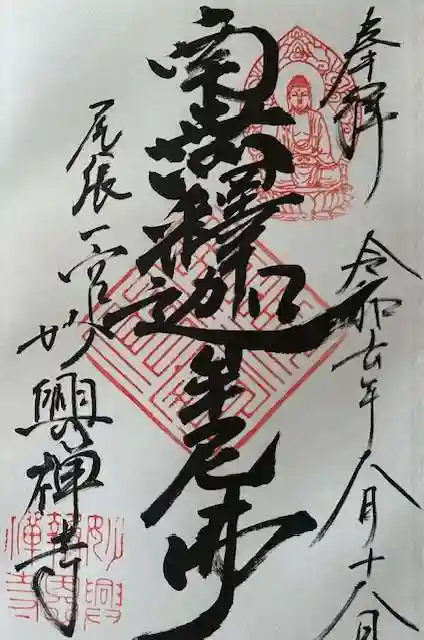 奉拝
令和六年八月十八日
南無釋迦牟尼佛
尾張一宮
妙興禅寺
妙興報恩禅寺